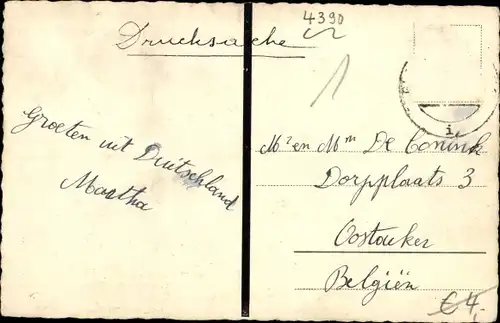 4390
Drucksache
1
Groeten uit Duitschland
Martha
Mr en Mm De Coninck
Dorpplaats 3
Oostacker
Belgiën
€4,